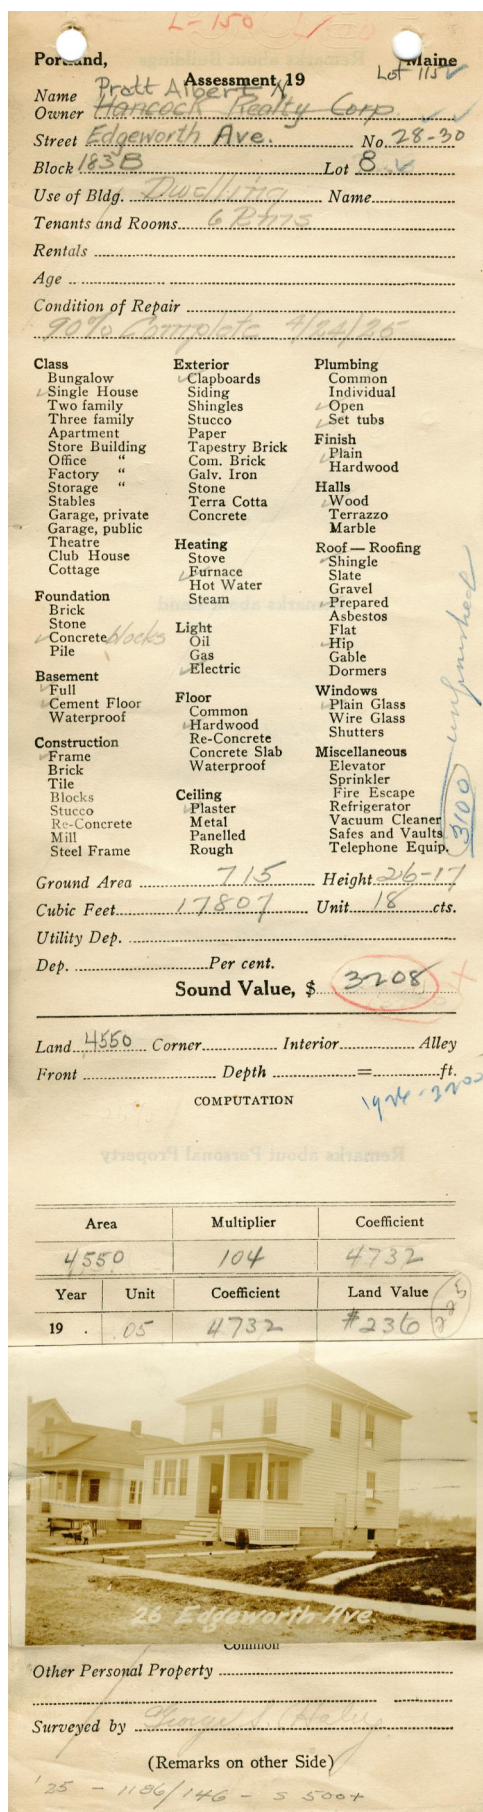 L-150
Portland, Maine
Assessment 19
Lot 115
Name Pratt Albert N.
Owner Hancock Realty Corp.
Street Edgeworth Ave. No. 28-30
Block 183B Lot 8
Use of Bldg. Dwelling Name
Tenants and Rooms 6 Rms
Rentals
Age
Condition of Repair
90% Complete 4/24/25
Class
Bungalow
Single House
Two family
Three family
Apartment
Store Building
Office "
Factory "
Storage "
Stables
Garage, private
Garage, public
Theatre
Club House
Cottage
Foundation
Brick
Stone
Concrete blocks
Pile
Basement
Full
Cement Floor
Waterproof
Construction
Frame
Brick
Tile
Blocks
Stucco
Re-Concrete
Mill
Steel Frame
Exterior
Clapboards
Siding
Shingles
Stucco
Paper
Tapestry Brick
Com. Brick
Galv. Iron
Stone
Terra Cotta
Concrete
Heating
Stove
Furnace
Hot Water
Steam
Light
Oil
Gas
Electric
Floor
Common
Hardwood
Re-Concrete
Concrete Slab
Waterproof
Ceiling
Plaster
Metal
Panelled
Rough
Plumbing
Common
Individual
Open
Set tubs
Finish
Plain
Hardwood
Halls
Wood
Terrazzo
Marble
Roof — Roofing
Shingle
Slate
Gravel
Prepared
Asbestos
Flat
Hip
Gable
Dormers
Windows
Plain Glass
Wire Glass
Shutters
Miscellaneous
Elevator
Sprinkler
Fire Escape
Refrigerator
Vacuum Cleaner
Safes and Vaults
Telephone Equip.
3100 unfinished
Ground Area 715 Height 26-17
Cubic Feet 17807 Unit 18 cts.
Utility Dep.
Dep. Per cent.
Sound Value, $ 3208
Land 4550 Corner Interior Alley
Front Depth = ft.
COMPUTATION
1926-3200
Remarks about Personal Property
Area Multiplier Coefficient
4550 104 4732
Year Unit Coefficient Land Value
225
19 . .05 4732 #236
26 Edgeworth Ave.
Common
Other Personal Property
Surveyed by George S. Haley
(Remarks on other Side)
'25 - 1186/146 - S 500+